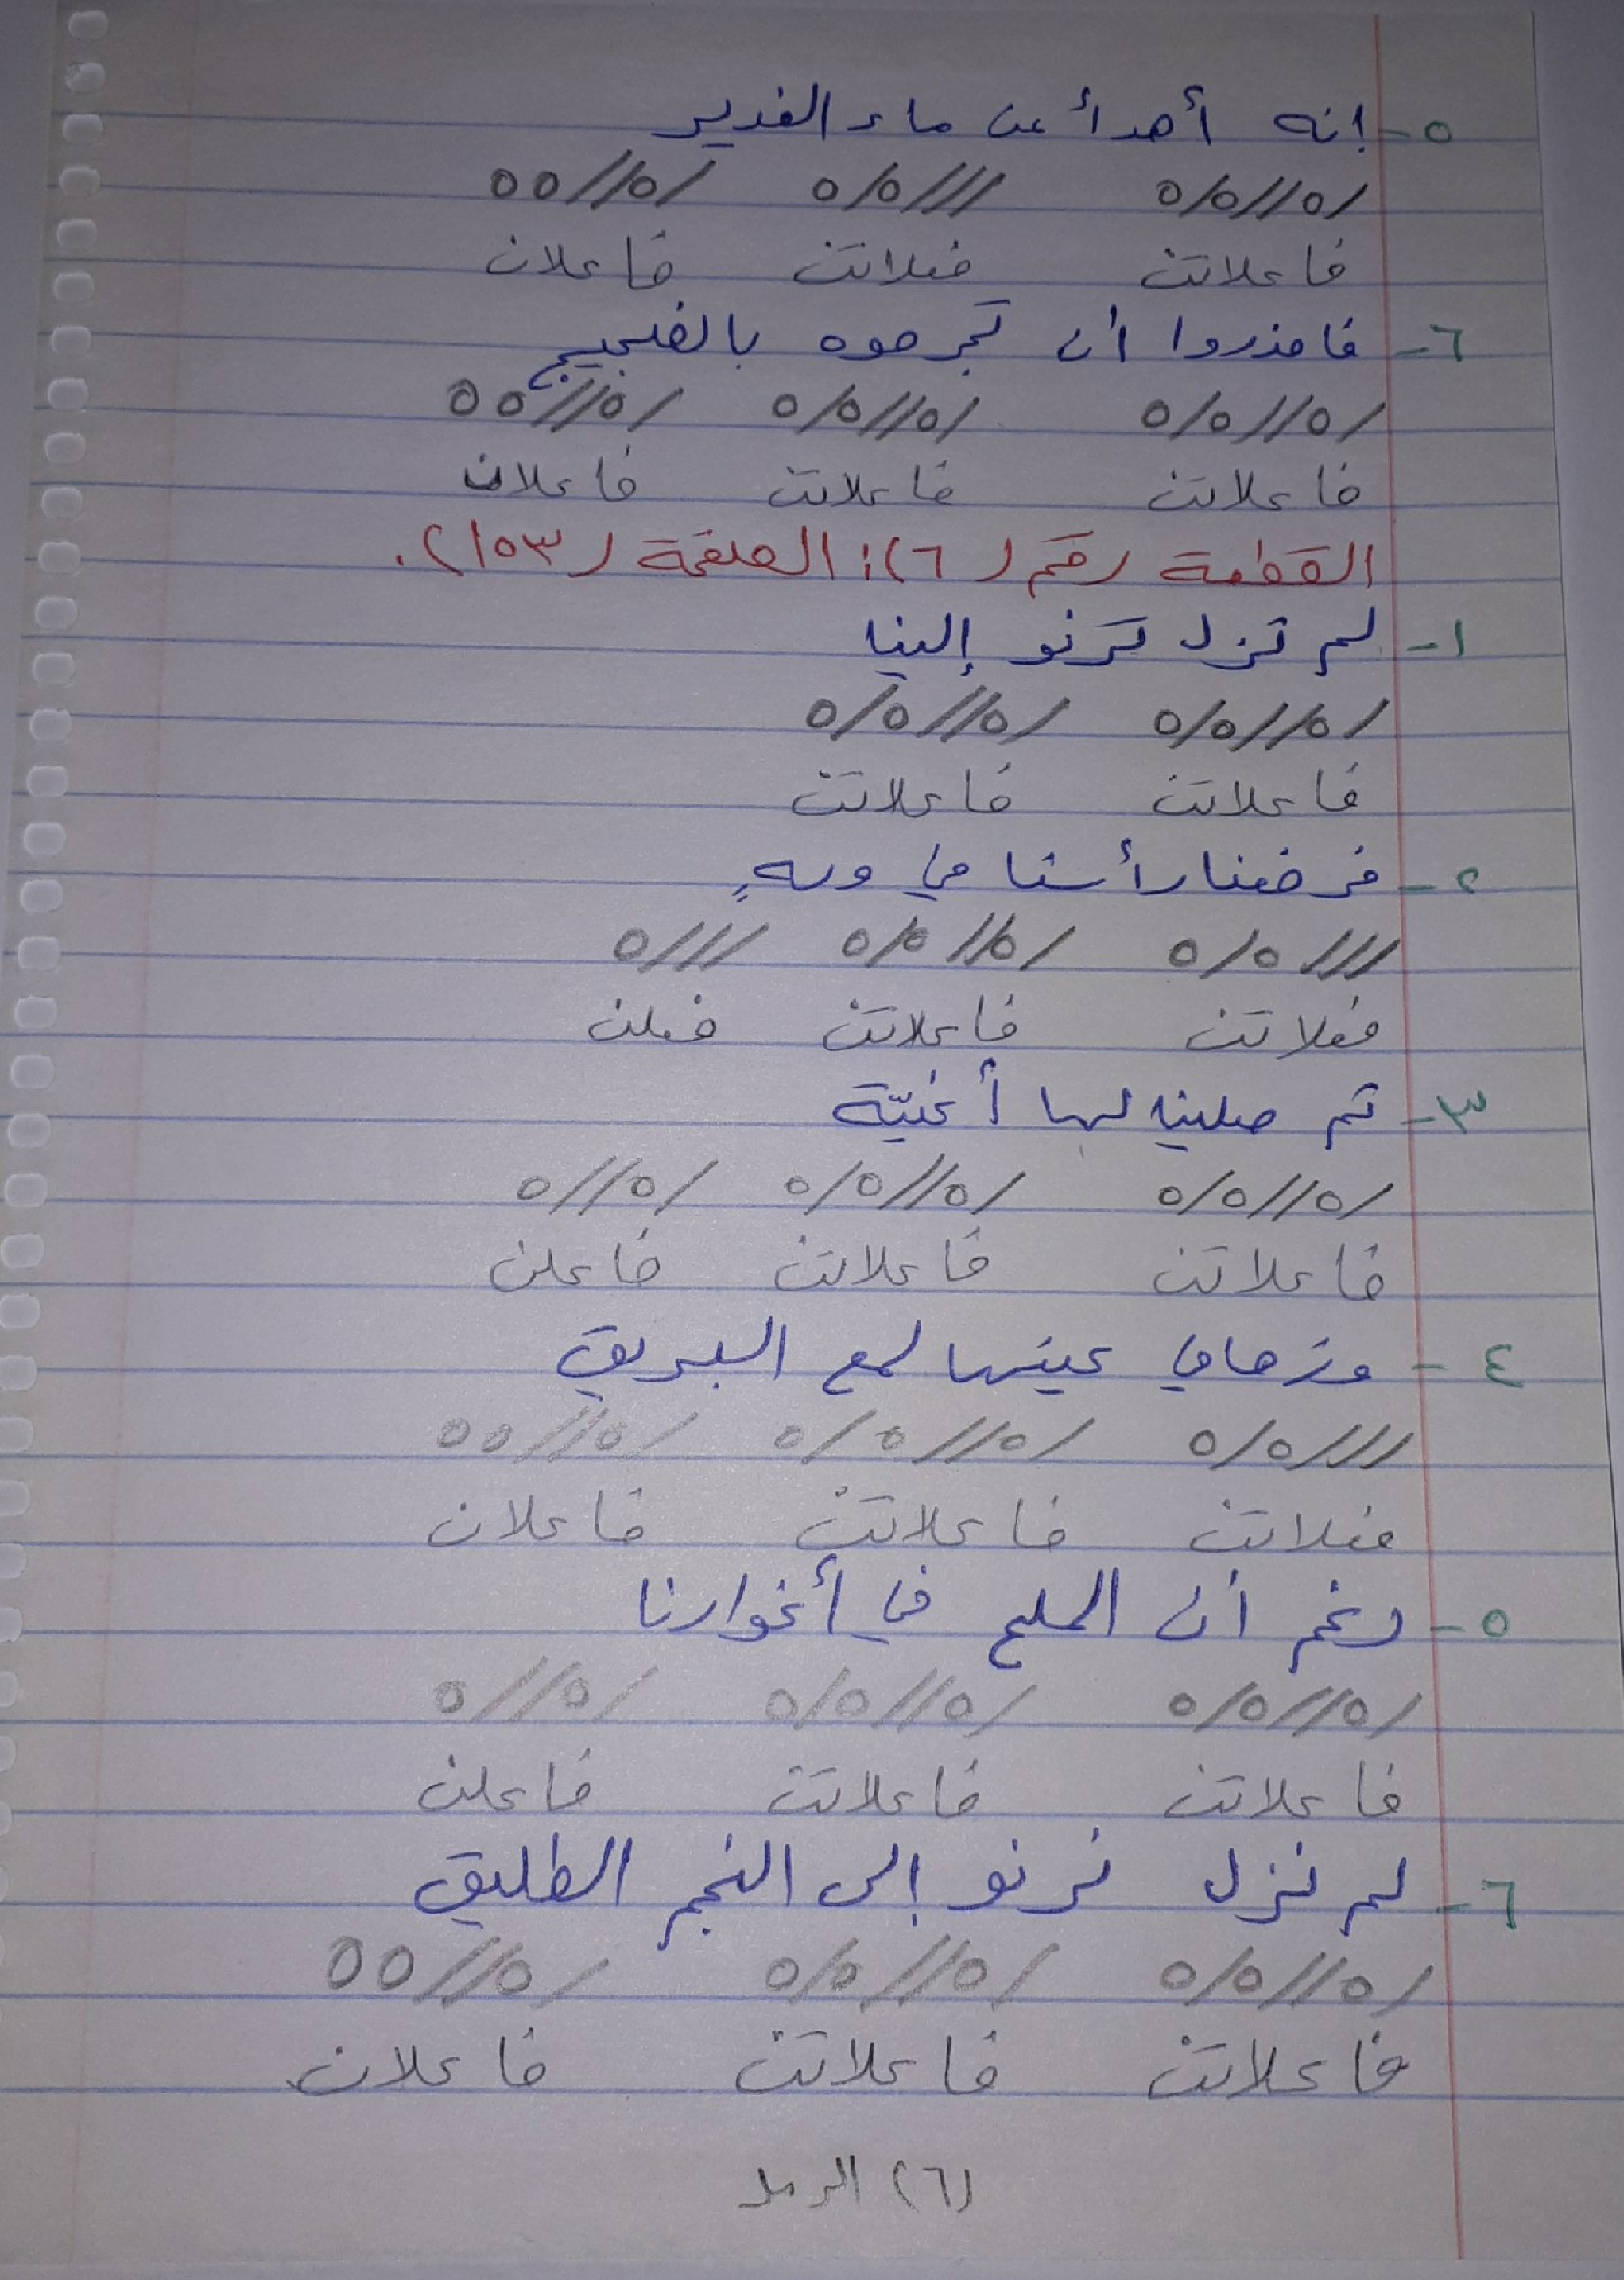 ٥- إنه أهدأ من ماء الغدير
/٥//٥/٥ ///٥/٥ /٥//٥٥
فاعلاتن فعلاتن فاعلان
٦- فاحذروا أن تجرحوه بالضجيج
/٥//٥/٥ /٥//٥/٥ /٥//٥٥
فاعلاتن فاعلاتن فاعلان
القطعة رقم (٦): الصفحة (١٥٣).
١- لم تزل ترنو إلينا
/٥//٥/٥ /٥//٥/٥
فاعلاتن فاعلاتن
٢- فرفعنا رأسنا في ولهٍ
///٥/٥ /٥//٥/٥ ///٥
فعلاتن فاعلاتن فعلن
٣- ثم صلينا لها أغنيّة
/٥//٥/٥ /٥//٥/٥ /٥//٥
فاعلاتن فاعلاتن فاعلن
٤- وزها في عينها لمع البريق
///٥/٥ /٥//٥/٥ /٥//٥٥
فعلاتن فاعلاتن فاعلان
٥- رغم أن الملح في أغوارنا
/٥//٥/٥ /٥//٥/٥ /٥//٥
فاعلاتن فاعلاتن فاعلن
٦- لم نزل نرنو إلى النجم الطليق
/٥//٥/٥ /٥//٥/٥ /٥//٥٥
فاعلاتن فاعلاتن فاعلان
(٦) الرمل